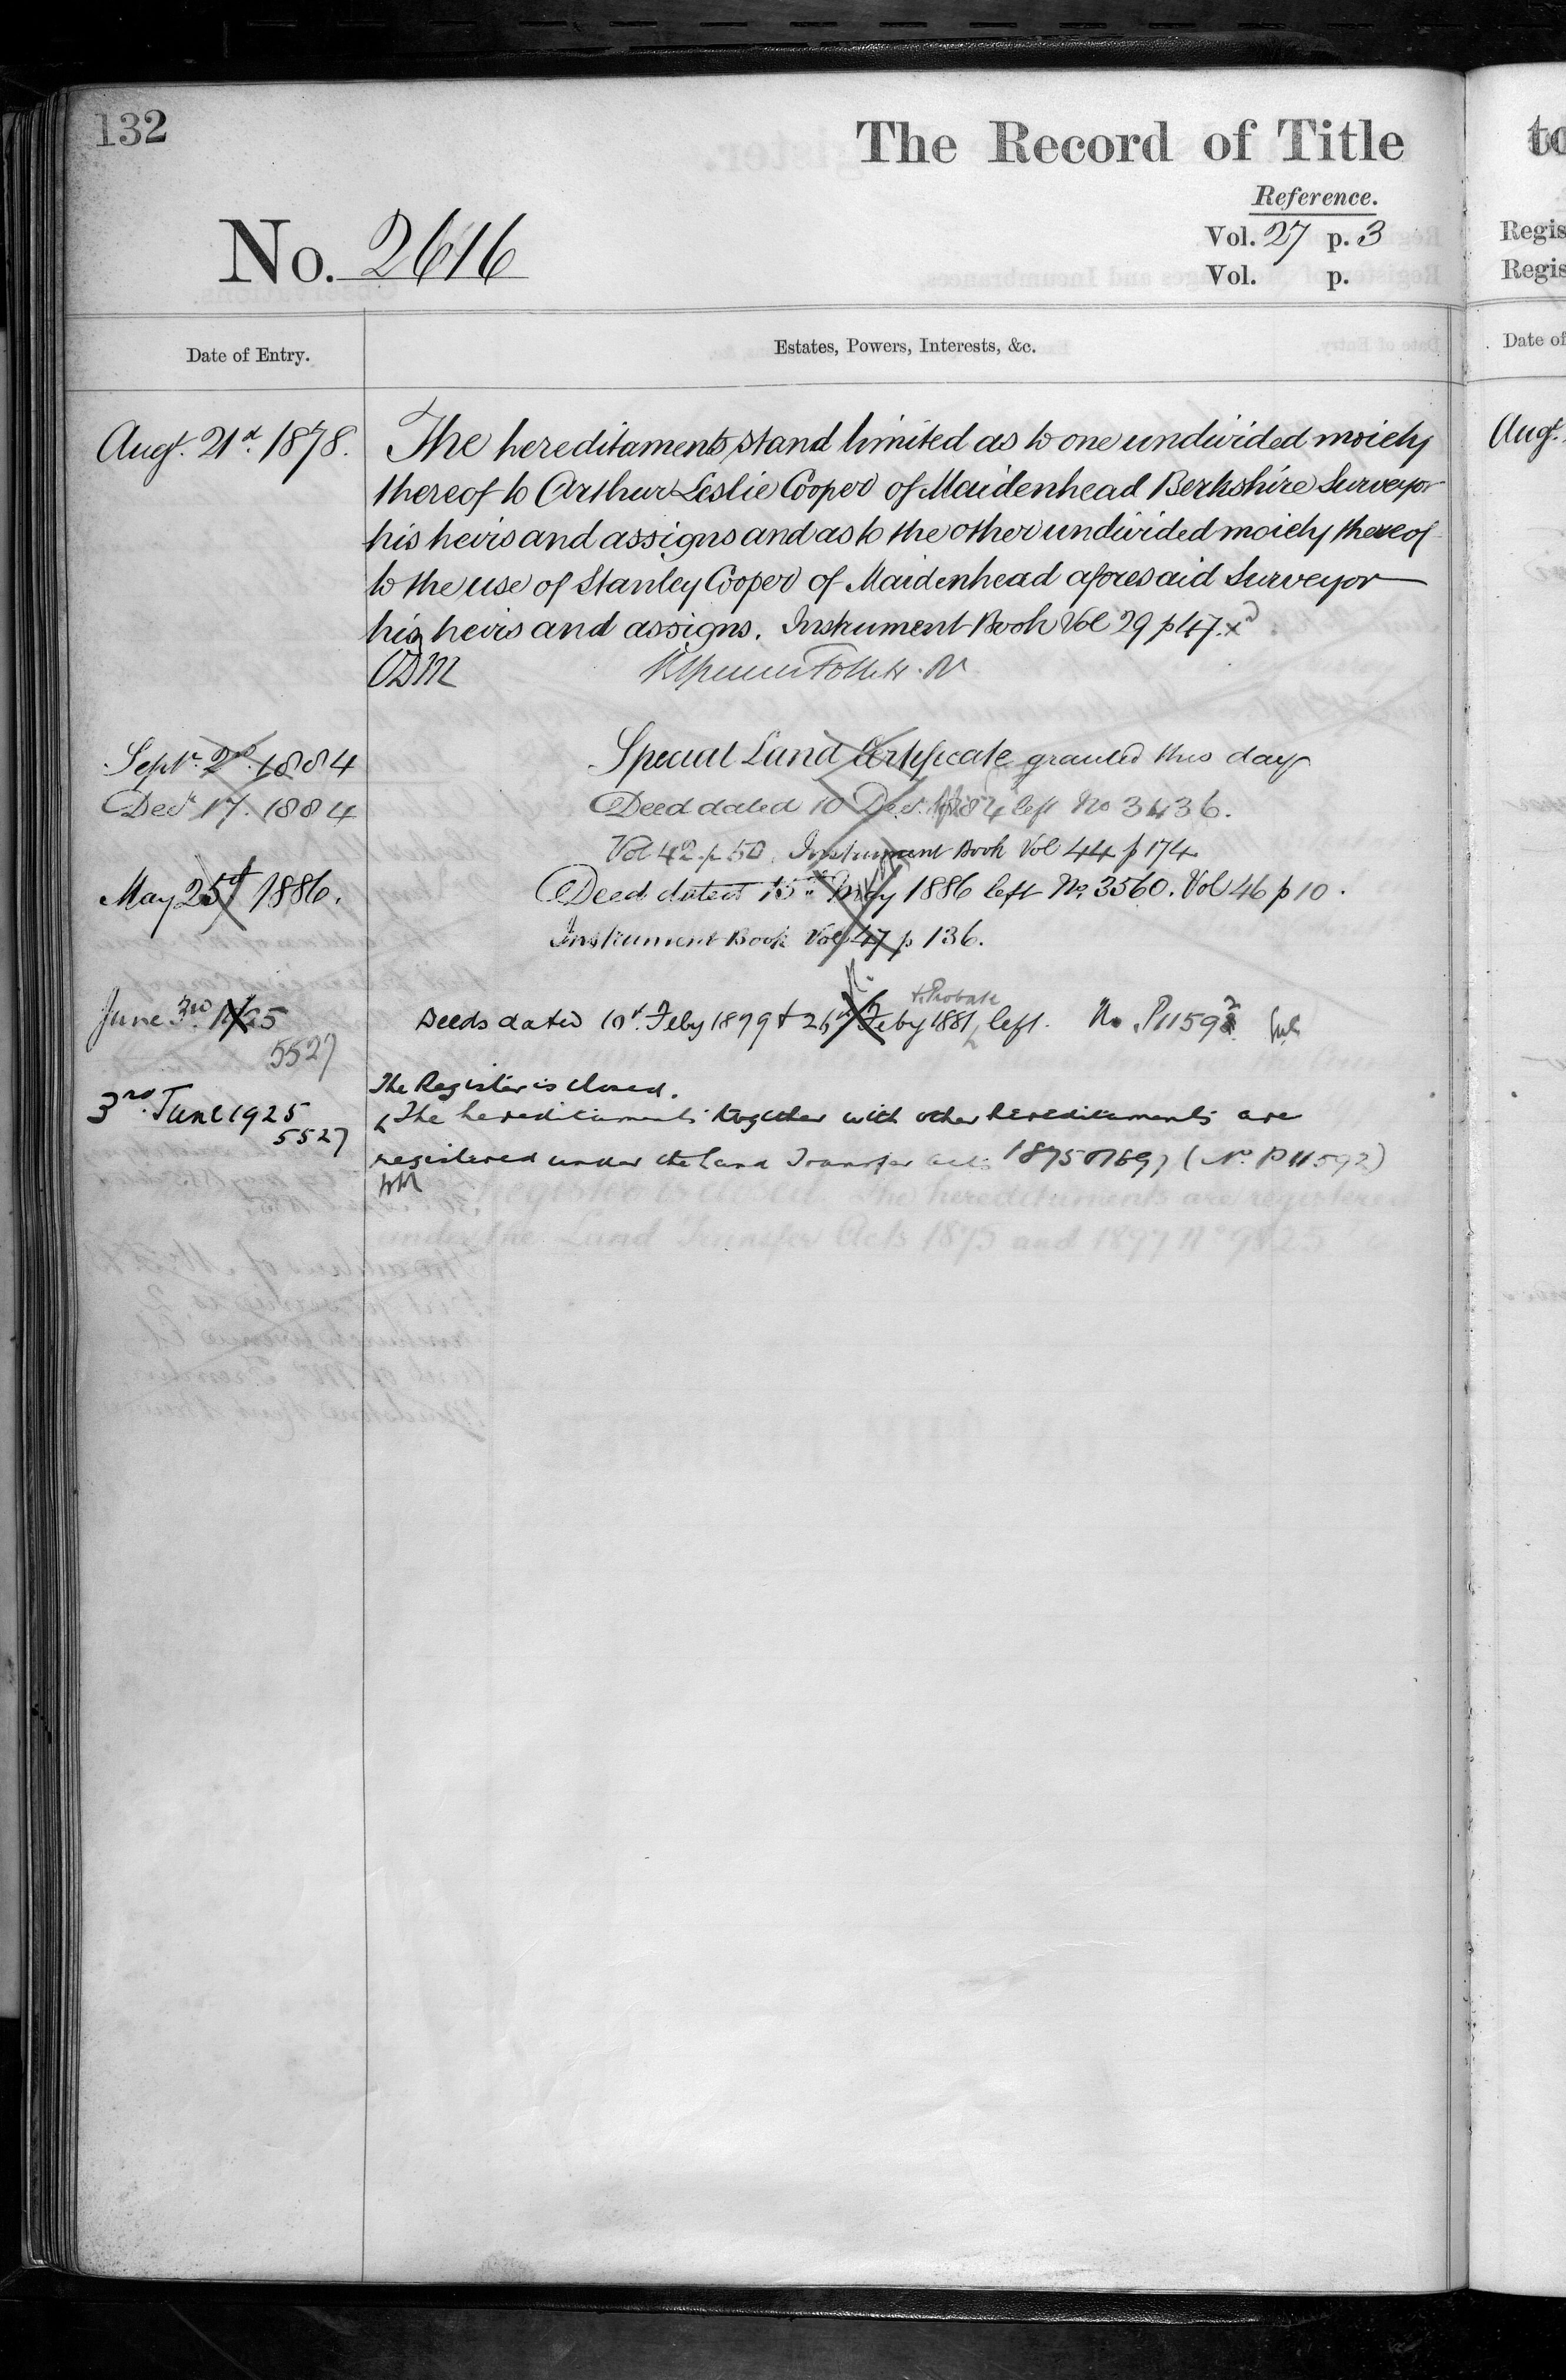 132
The Record of Title
Reference.
No. 2616
Vol. 27 p. 3
Vol. p.
Date of Entry.
Estates, Powers, Interests, &c.
Augt. 21st. 1878.
The hereditaments stand limited as to one undivided moiety
thereof to Arthur Leslie Cooper of Maidenhead Berkshire Surveyor
his heirs and assigns and as to the other undivided moiety thereof
to the use of Stanley Cooper of Maidenhead aforesaid Surveyor
his heirs and assigns. Instrument Book Vol 29 p 47.
Septr. 2nd. 1884
Special Land Certificate granted this day
Decr. 17. 1884
Deed dated 10 Decr. 1884 left No 3436.
Vol 42 p 50. Instrument Book Vol 44 p 174
May 25th 1886.
Deed dated 15th May 1886 left No. 3560. Vol 46 p 10.
Instrument Book Vol 47 p 136.
June 3rd 1925
5527
Deeds dated 10th. Feby 1899 & 26th Feby 1881 & Probate left. No. P11592
The Register is closed.
3rd. June 1925
5527
The hereditaments together with other hereditaments are
registered under the Land Transfer acts 1875 & 1897 (No. P11592)
Register is closed. The hereditaments are registered
under the Land Transfer Acts 1875 and 1897 No 9825
to
Regis
Regis
Date of
Aug.